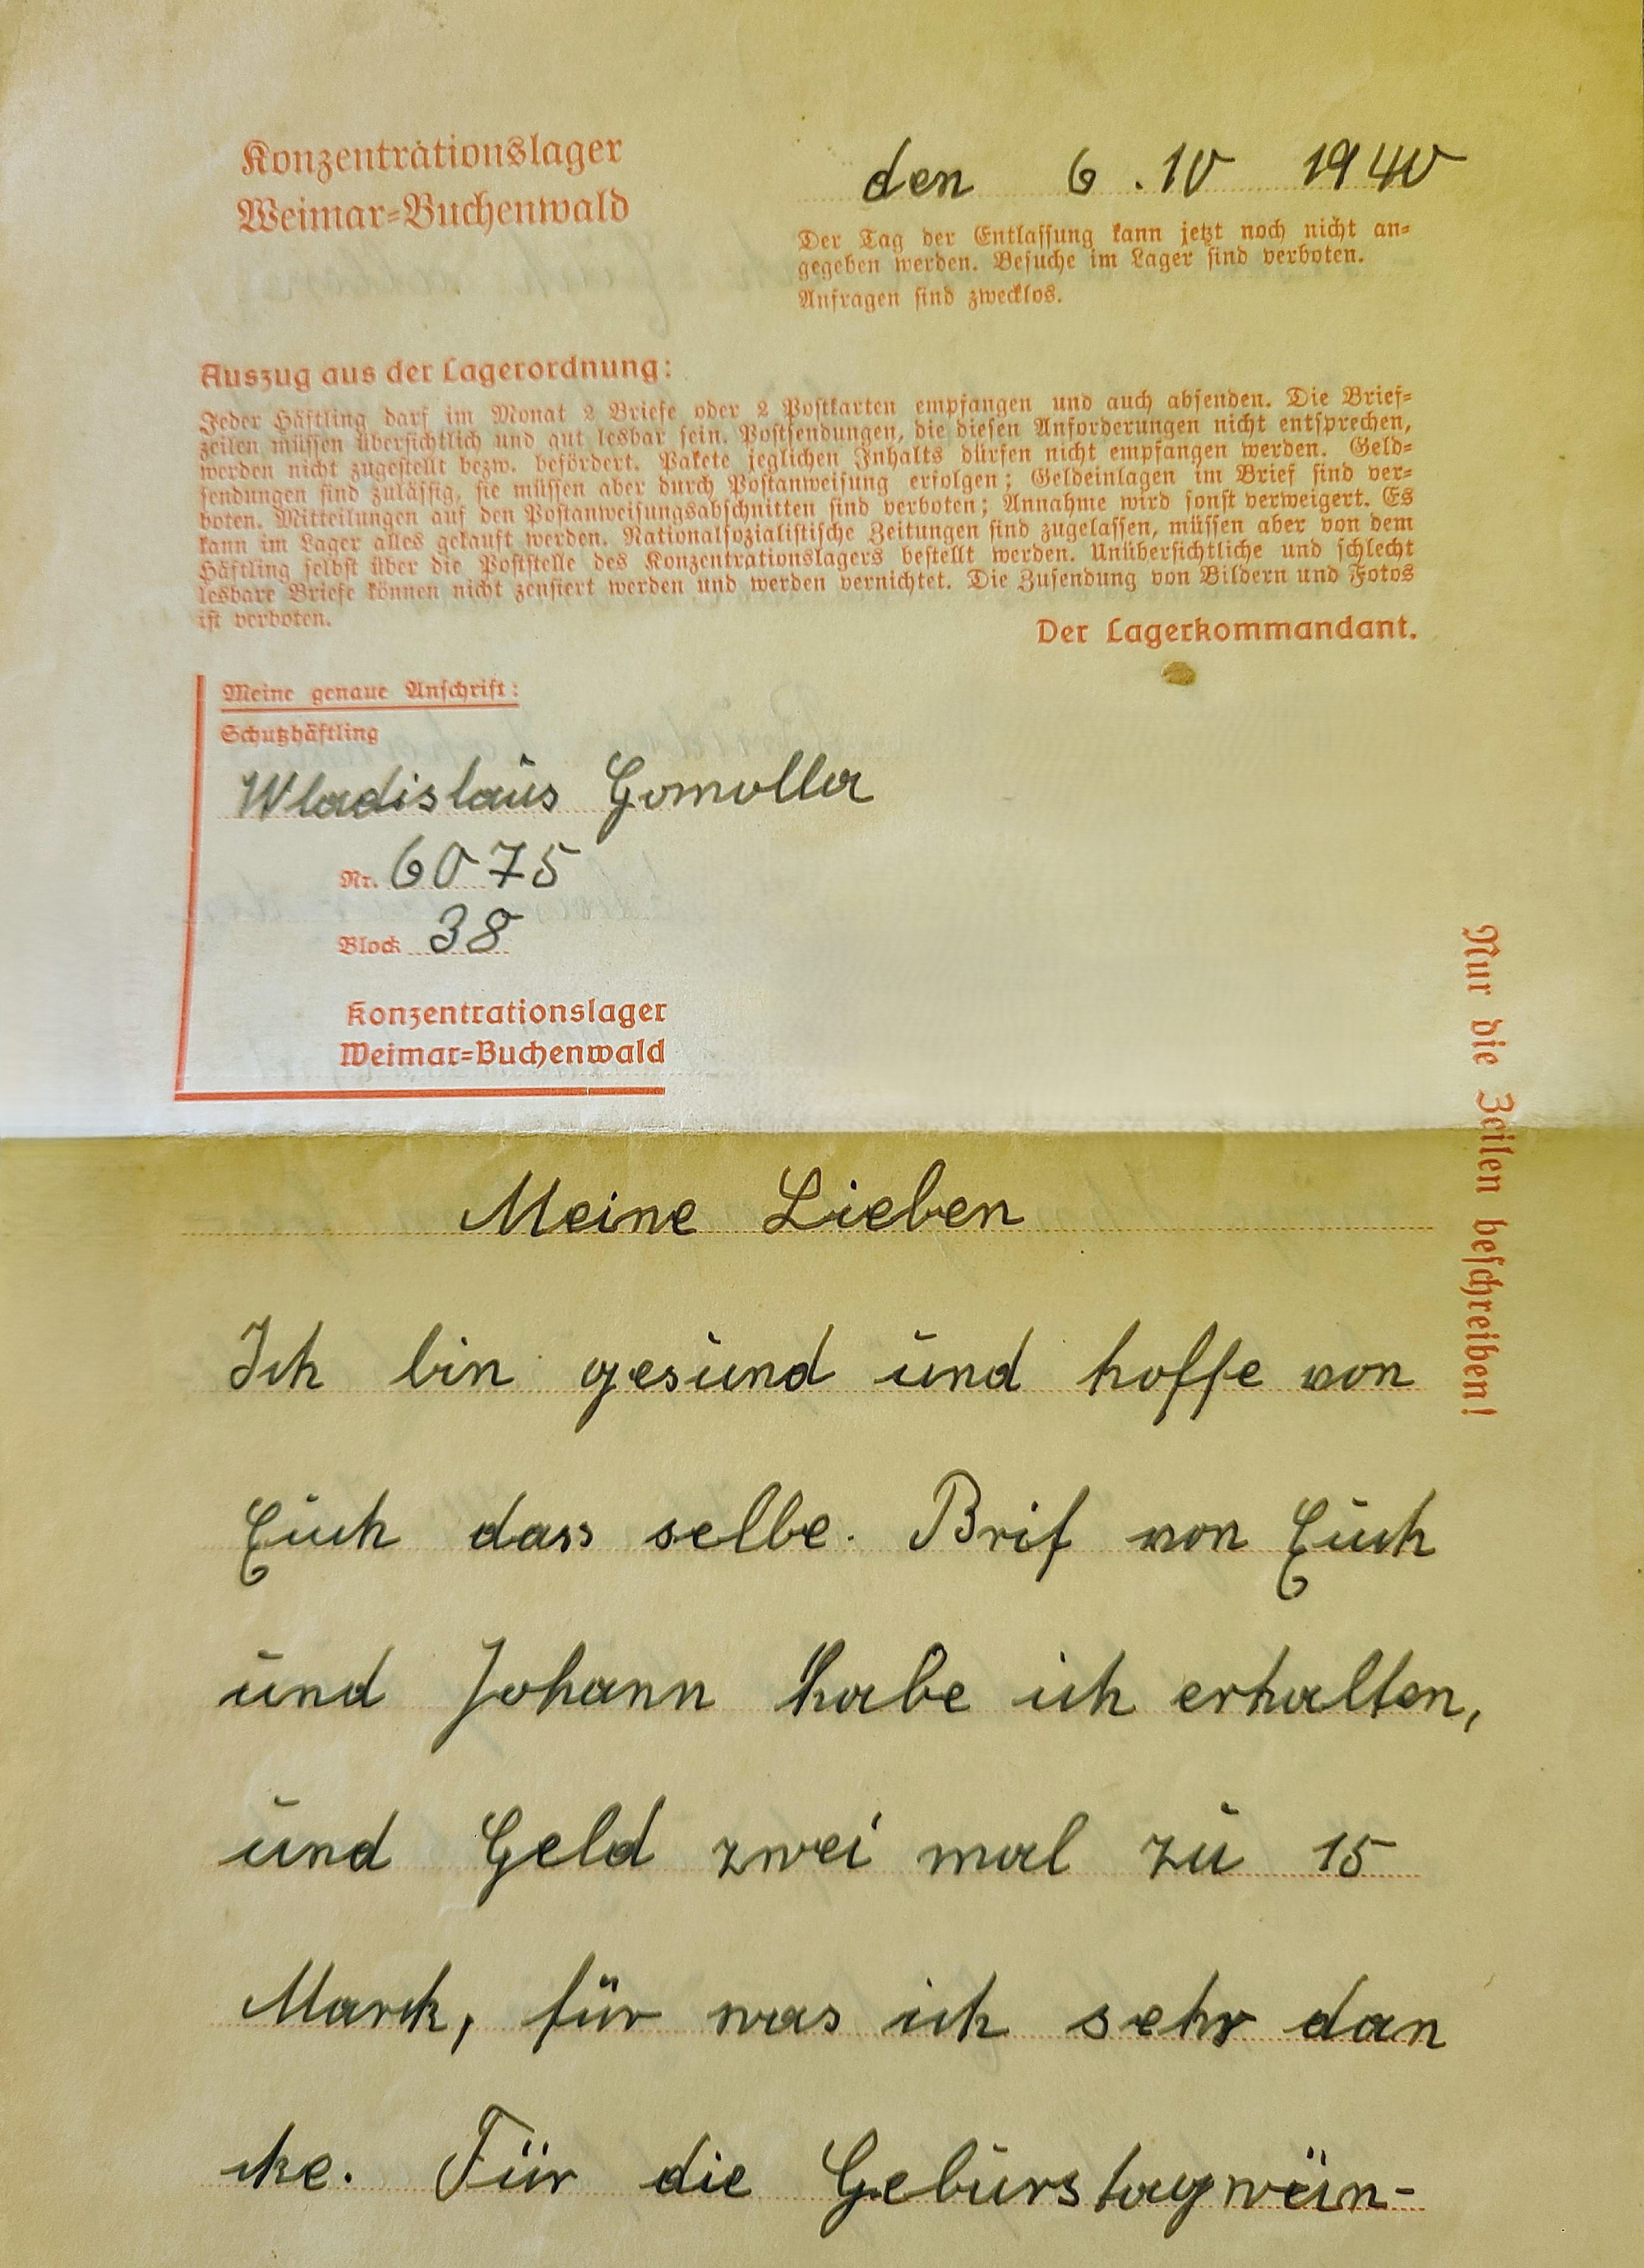 Konzentrationslager
Weimar=Buchenwald
den 6.10 1940
Der Tag der Entlassung kann jetzt noch nicht an=
gegeben werden. Besuche im Lager sind verboten.
Anfragen sind zwecklos.
Auszug aus der Lagerordnung:
Jeder Häftling darf im Monat 2 Briefe oder 2 Postkarten empfangen und auch absenden. Die Brief=
zeilen müssen übersichtlich und gut lesbar sein. Postsendungen, die diesen Anforderungen nicht entsprechen,
werden nicht zugestellt bezw. befördert. Pakete jeglichen Inhalts dürfen nicht empfangen werden. Geld=
sendungen sind zulässig, sie müssen aber durch Postanweisung erfolgen; Geldeinlagen im Brief sind ver=
boten. Mitteilungen auf den Postanweisungsabschnitten sind verboten; Annahme wird sonst verweigert. Es
kann im Lager alles gekauft werden. Nationalsozialistische Zeitungen sind zugelassen, müssen aber von dem
Häftling selbst über die Poststelle des Konzentrationslagers bestellt werden. Unübersichtliche und schlecht
lesbare Briefe können nicht zensiert werden und werden vernichtet. Die Zusendung von Bildern und Fotos
ist verboten.
Der Lagerkommandant.
Meine genaue Anschrift:
Schutzhäftling
Wladislaus Gomolla
Nr. 6075
Block 38
Konzentrationslager
Weimar=Buchenwald
Nur die Zeilen beschreiben!
Meine Lieben
Ich bin gesund und hoffe von
Euch dass selbe. Brif von Euch
und Johann habe ich erhalten,
und Geld zwei mal zu 15
Marck, für was ich sehr dan
cke. Für die Geburstagwün-